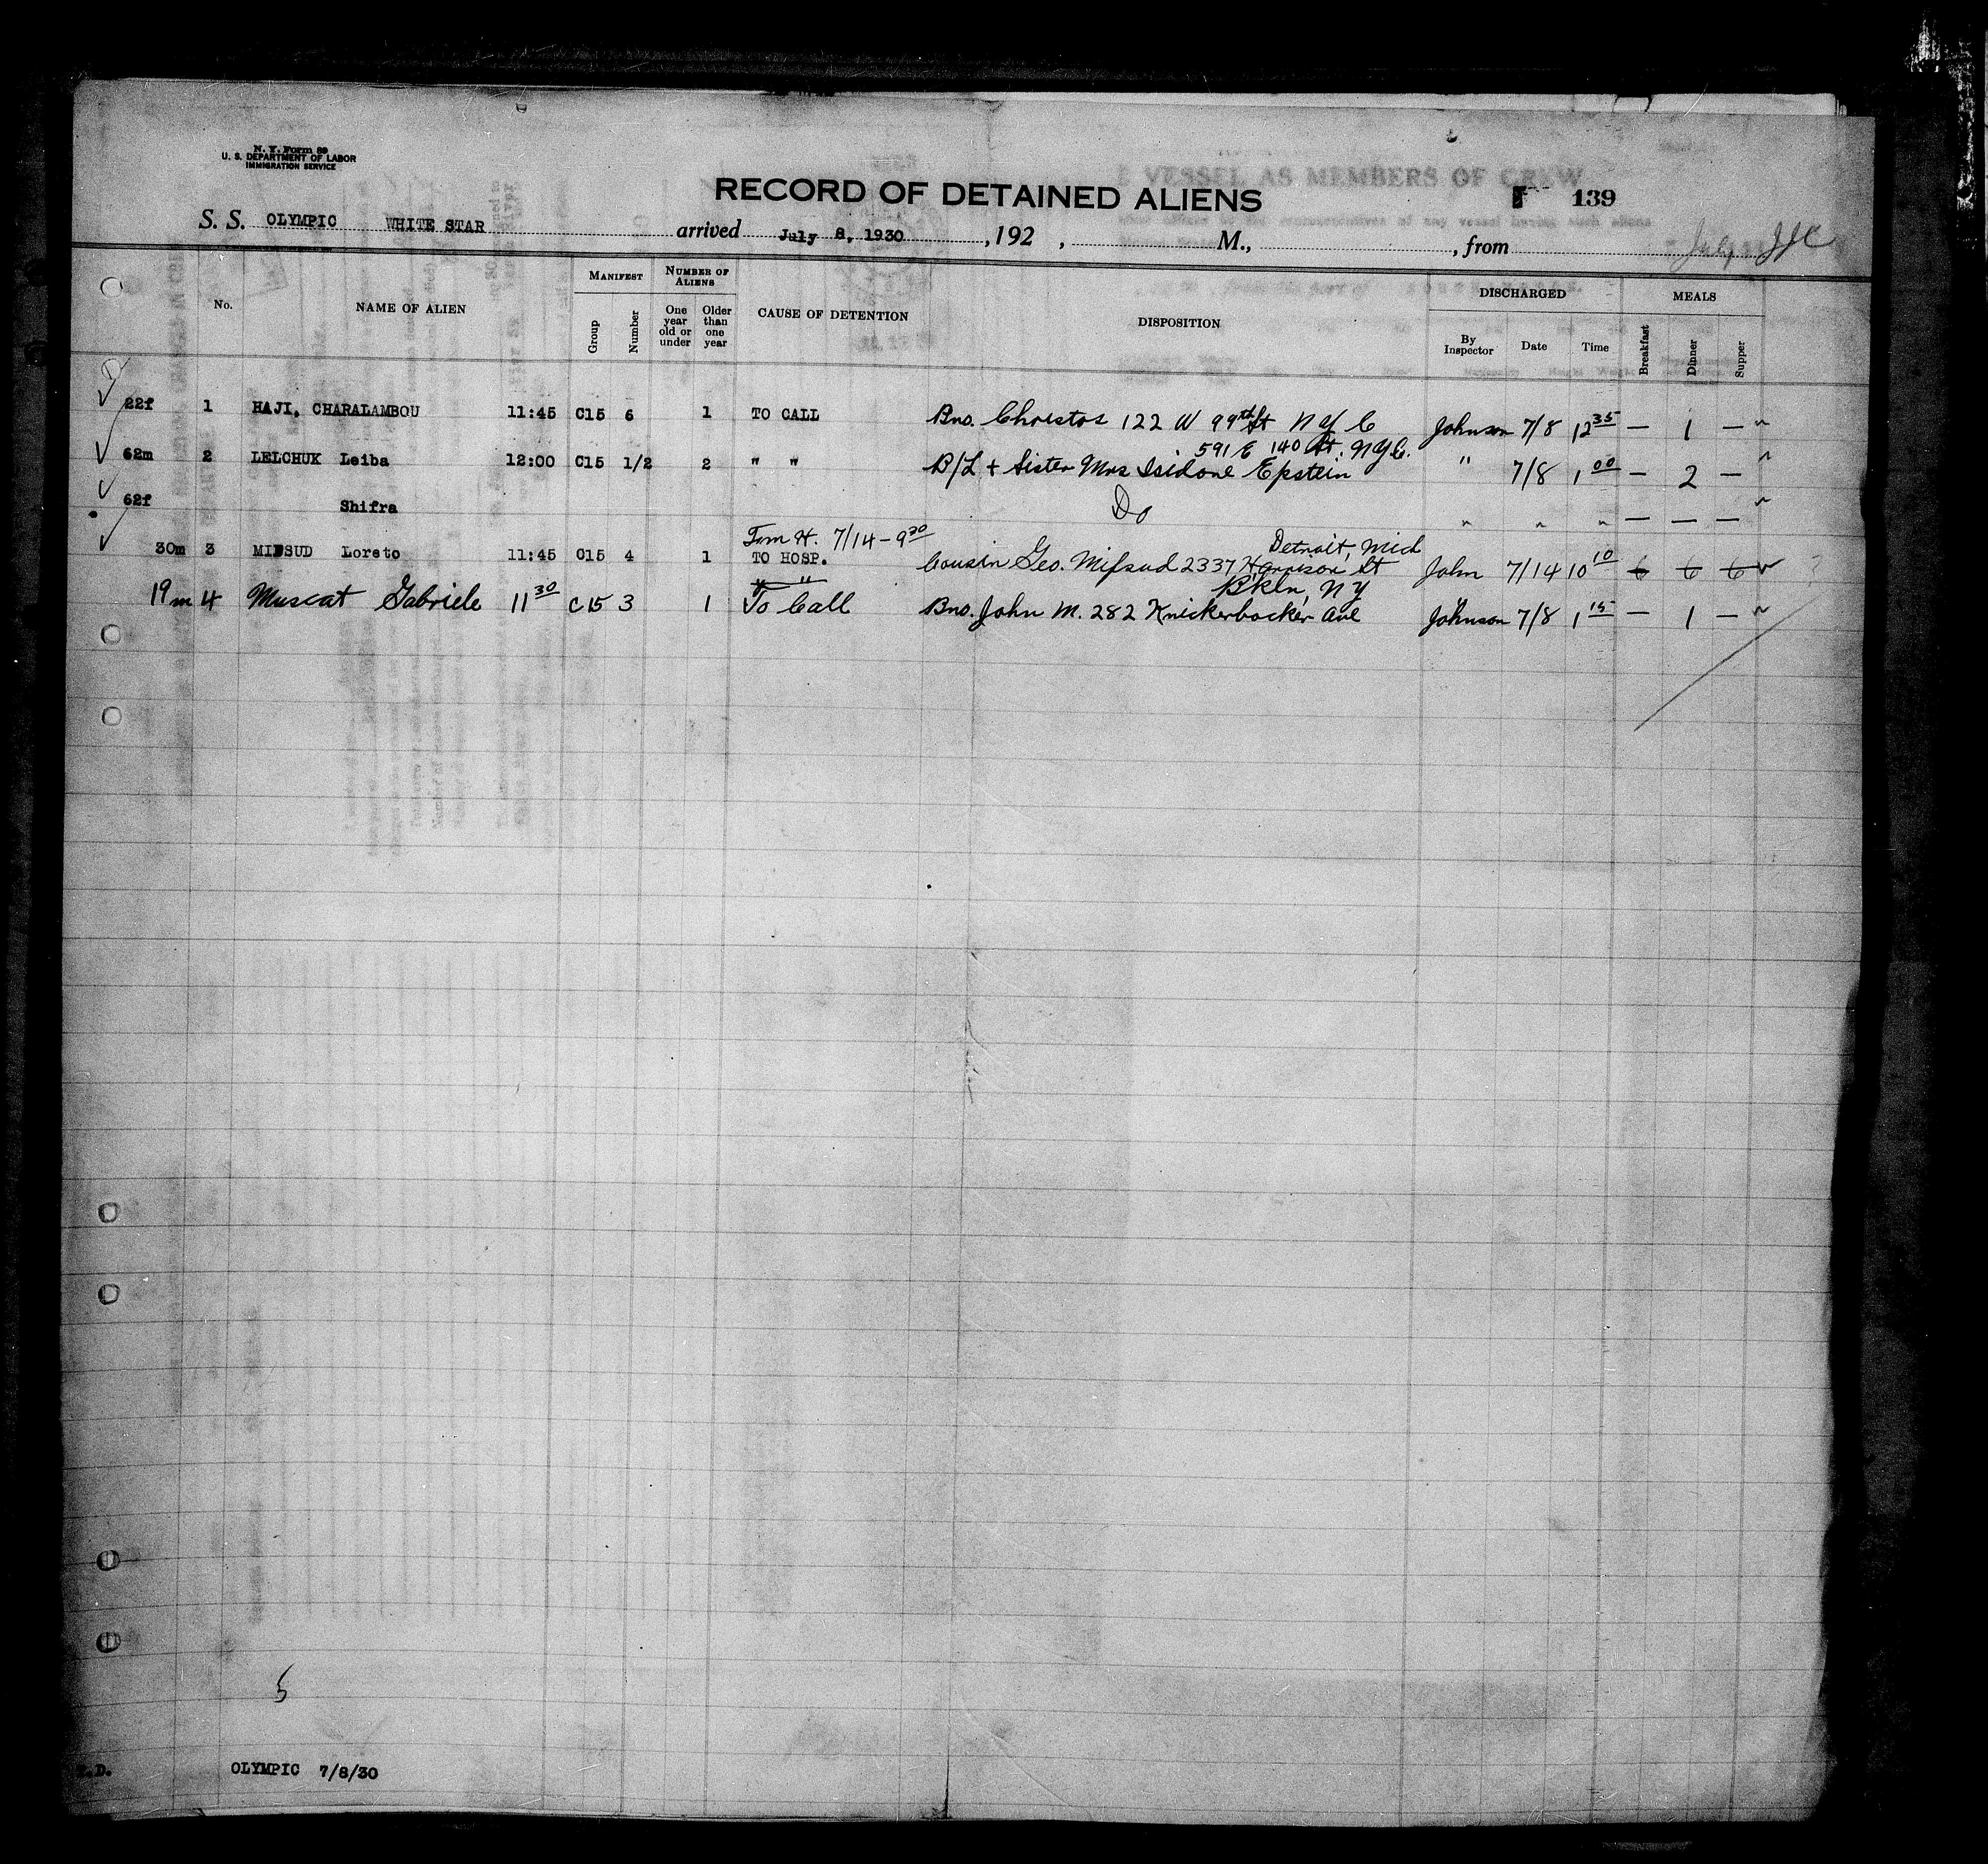 N. Y. Form 89
U. S. DEPARTMENT OF LABOR
IMMIGRATION SERVICE
RECORD OF DETAINED ALIENS
139
S. S. OLYMPIC WHITE STAR arrived July 8, 1930, 192 , M., , from
No. NAME OF ALIEN MANIFEST Group Number NUMBER OF ALIENS One year old or under Older than one year CAUSE OF DETENTION DISPOSITION DISCHARGED By Inspector Date Time MEALS Breakfast Dinner Supper
22f 1 HAJI, CHARALAMBOU 11:45 C15 6 1 TO CALL Bro. Christos 122 W 99th St N Y C Johnson 7/8 12 35 — 1 —
591 E 140 St. N.Y.C.
62m 2 LELCHUK Leiba 12:00 C15 1/2 2 " " B/L + Sister Mrs Isidore Epstein " 7/8 1 00 — 2 —
62f Shifra Do " " " — — —
7/14 - 9 30 Detroit, Mich
30m 3 MIFSUD Loreto 11:45 C15 4 1 TO HOSP. Cousin Geo. Mifsud 2337 Harrison St John 7/14 10 10 6 6 6
" " Bkln, N Y
19m 4 Muscat Gabriele 11 30 C15 3 1 To Call Bro. John M. 282 Knickerbocker Ave Johnson 7/8 1 15 — 1 —
5
OLYMPIC 7/8/30